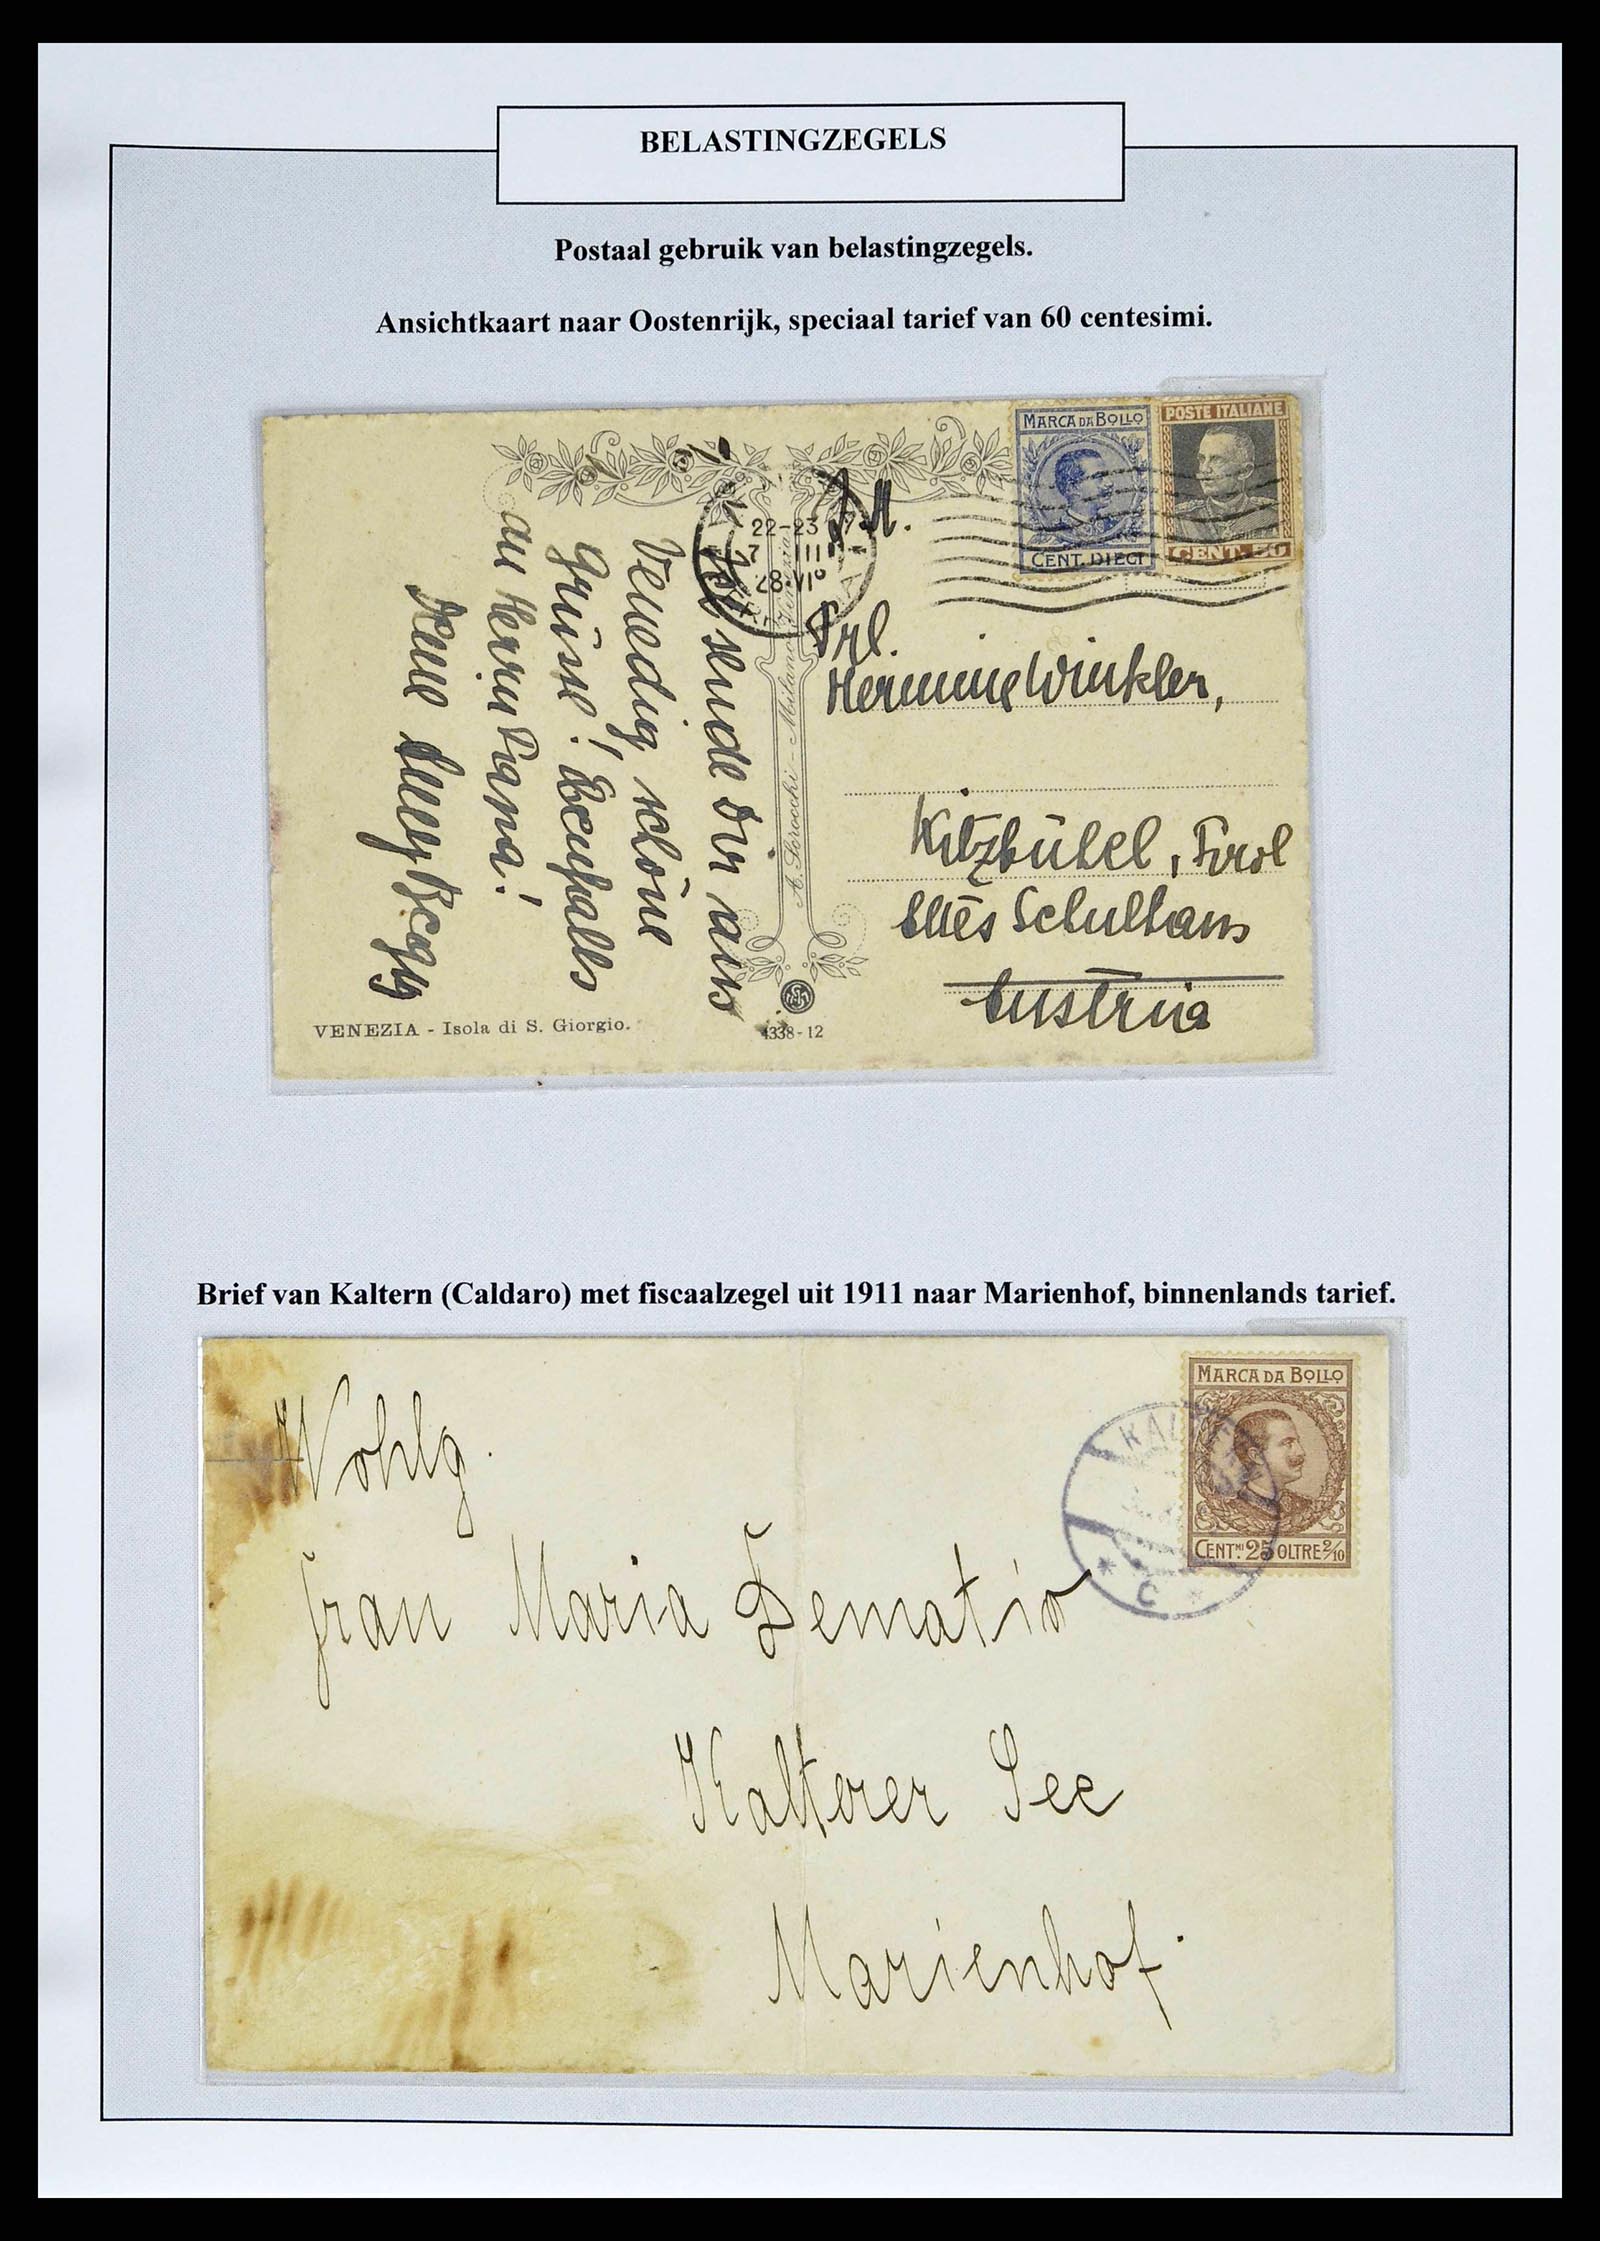 BELASTINGZEGELS
Postaal gebruik van belastingzegels.
Ansichtkaart naar Oostenrijk, speciaal tarief van 60 centesimi.
MARCA DA BOLLO
CENT. DIECI
POSTE ITALIANE
CENT. 50
22-23
7 III
28·VI°
Frl.
Hermine Winkler,
Kitzbühel, Tirol
Altes Schulhaus
Austria
sende Dir aus
Venedig schöne
Grüsse! Ebenfalls
an Herrn Papa!
A. Scrocchi - Milano
VENEZIA - Isola di S. Giorgio.
4338-12
Brief van Kaltern (Caldaro) met fiscaalzegel uit 1911 naar Marienhof, binnenlands tarief.
MARCA DA BOLLO
CENT.MI 25 OLTRE 2/10
KALTERN
* C *
Wohlg.
Frau Maria Dematio
Kalterer See
Marienhof.